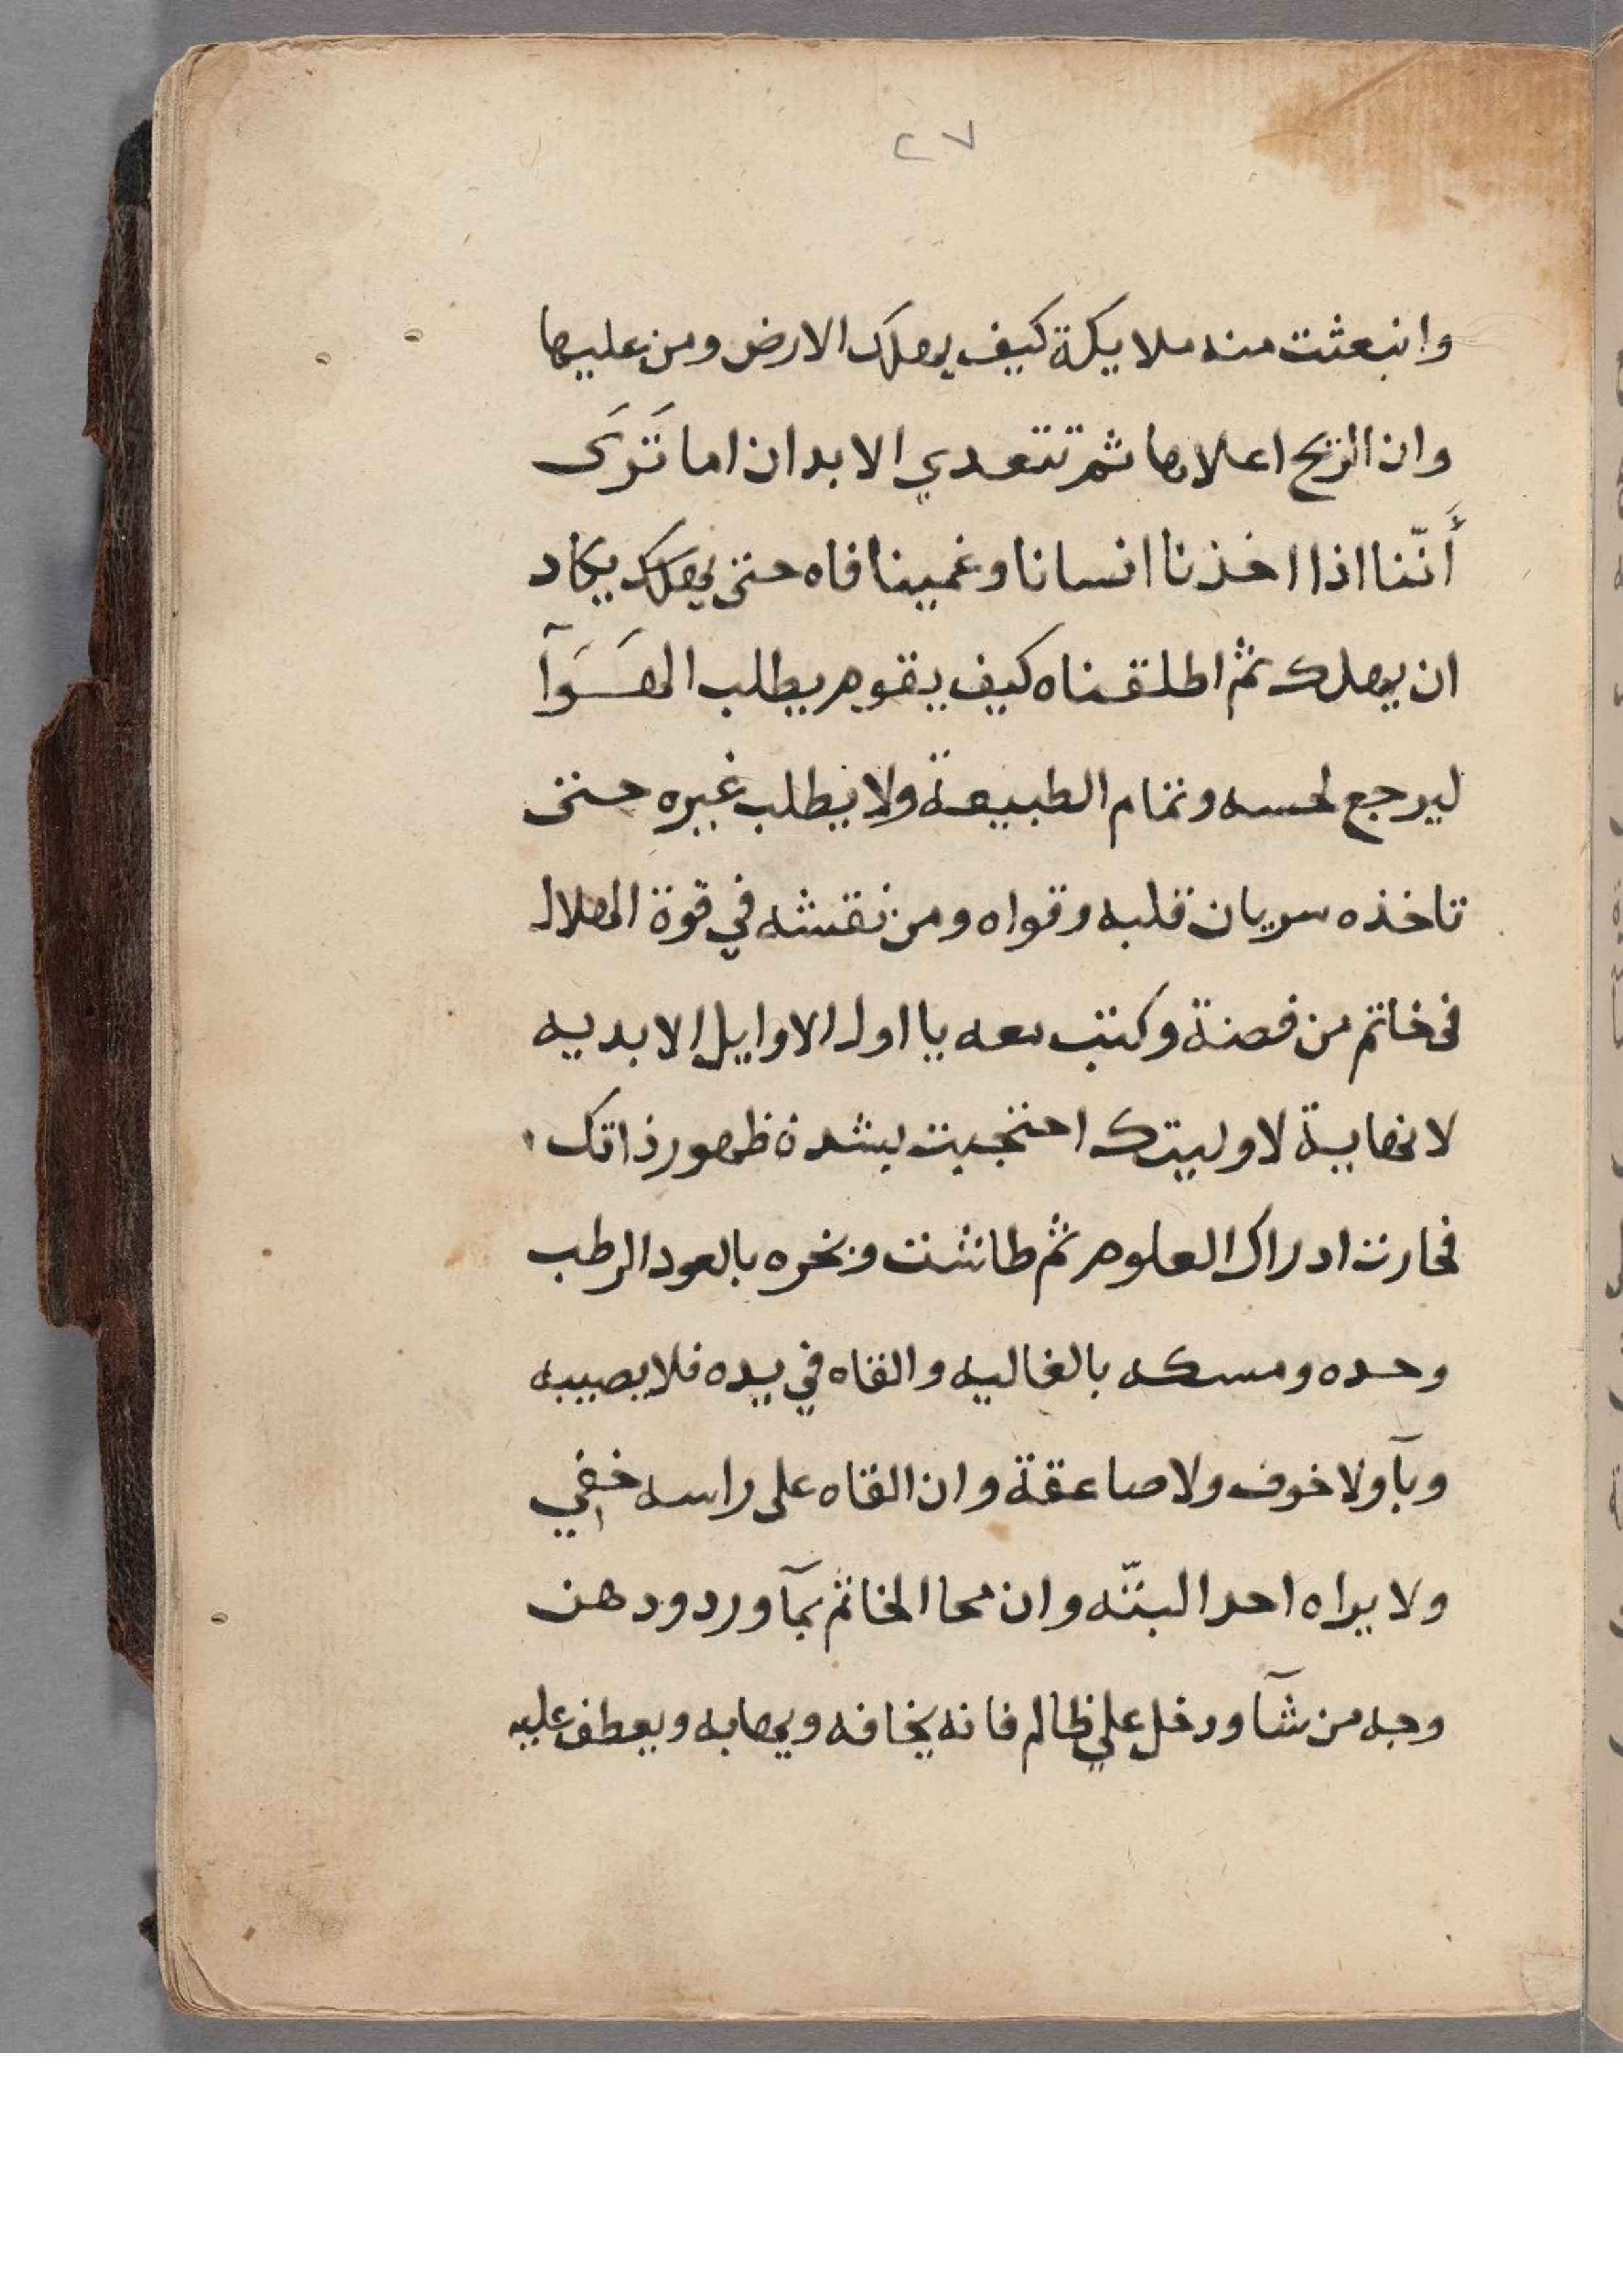 ٢٧
وانبعثت منه ملايكة كيف يهلك الارض ومن عليها
وان الريح اعلاها ثم تتعدي الابدان اما تَرَى
أَنّنا اذا اخذنا انسانا وغمينا فاه حتى يهلك يكاد
ان يهلك ثم اطلقناه كيف يقوم يطلب الهَوَآ
ليرجع لحسه وتمام الطبيعة ولا يطلب غيره حتى
تاخذه سريان قلبه وقواه ومن نقشه في قوة الهلال
فى خاتم من فضة وكتب معه يا اول الاوايل الابديه
لا نهاية لاوليتك احتجبت بشدة ظهور ذاتك
فحارت ادراك العلوم ثم طاشت وبخره بالعود الرطب
وحده ومسكه بالغاليه والقاه في يده فلا يصيبه
وبآ ولا خوف ولا صاعقة وان القاه على راسه خفي
ولا يراه احد البتّه وان محا الخاتم بمآ ورد ودهن
وجه من شآ ودخل علي ظالم فانه يخافه ويهابه ويعطف عليه